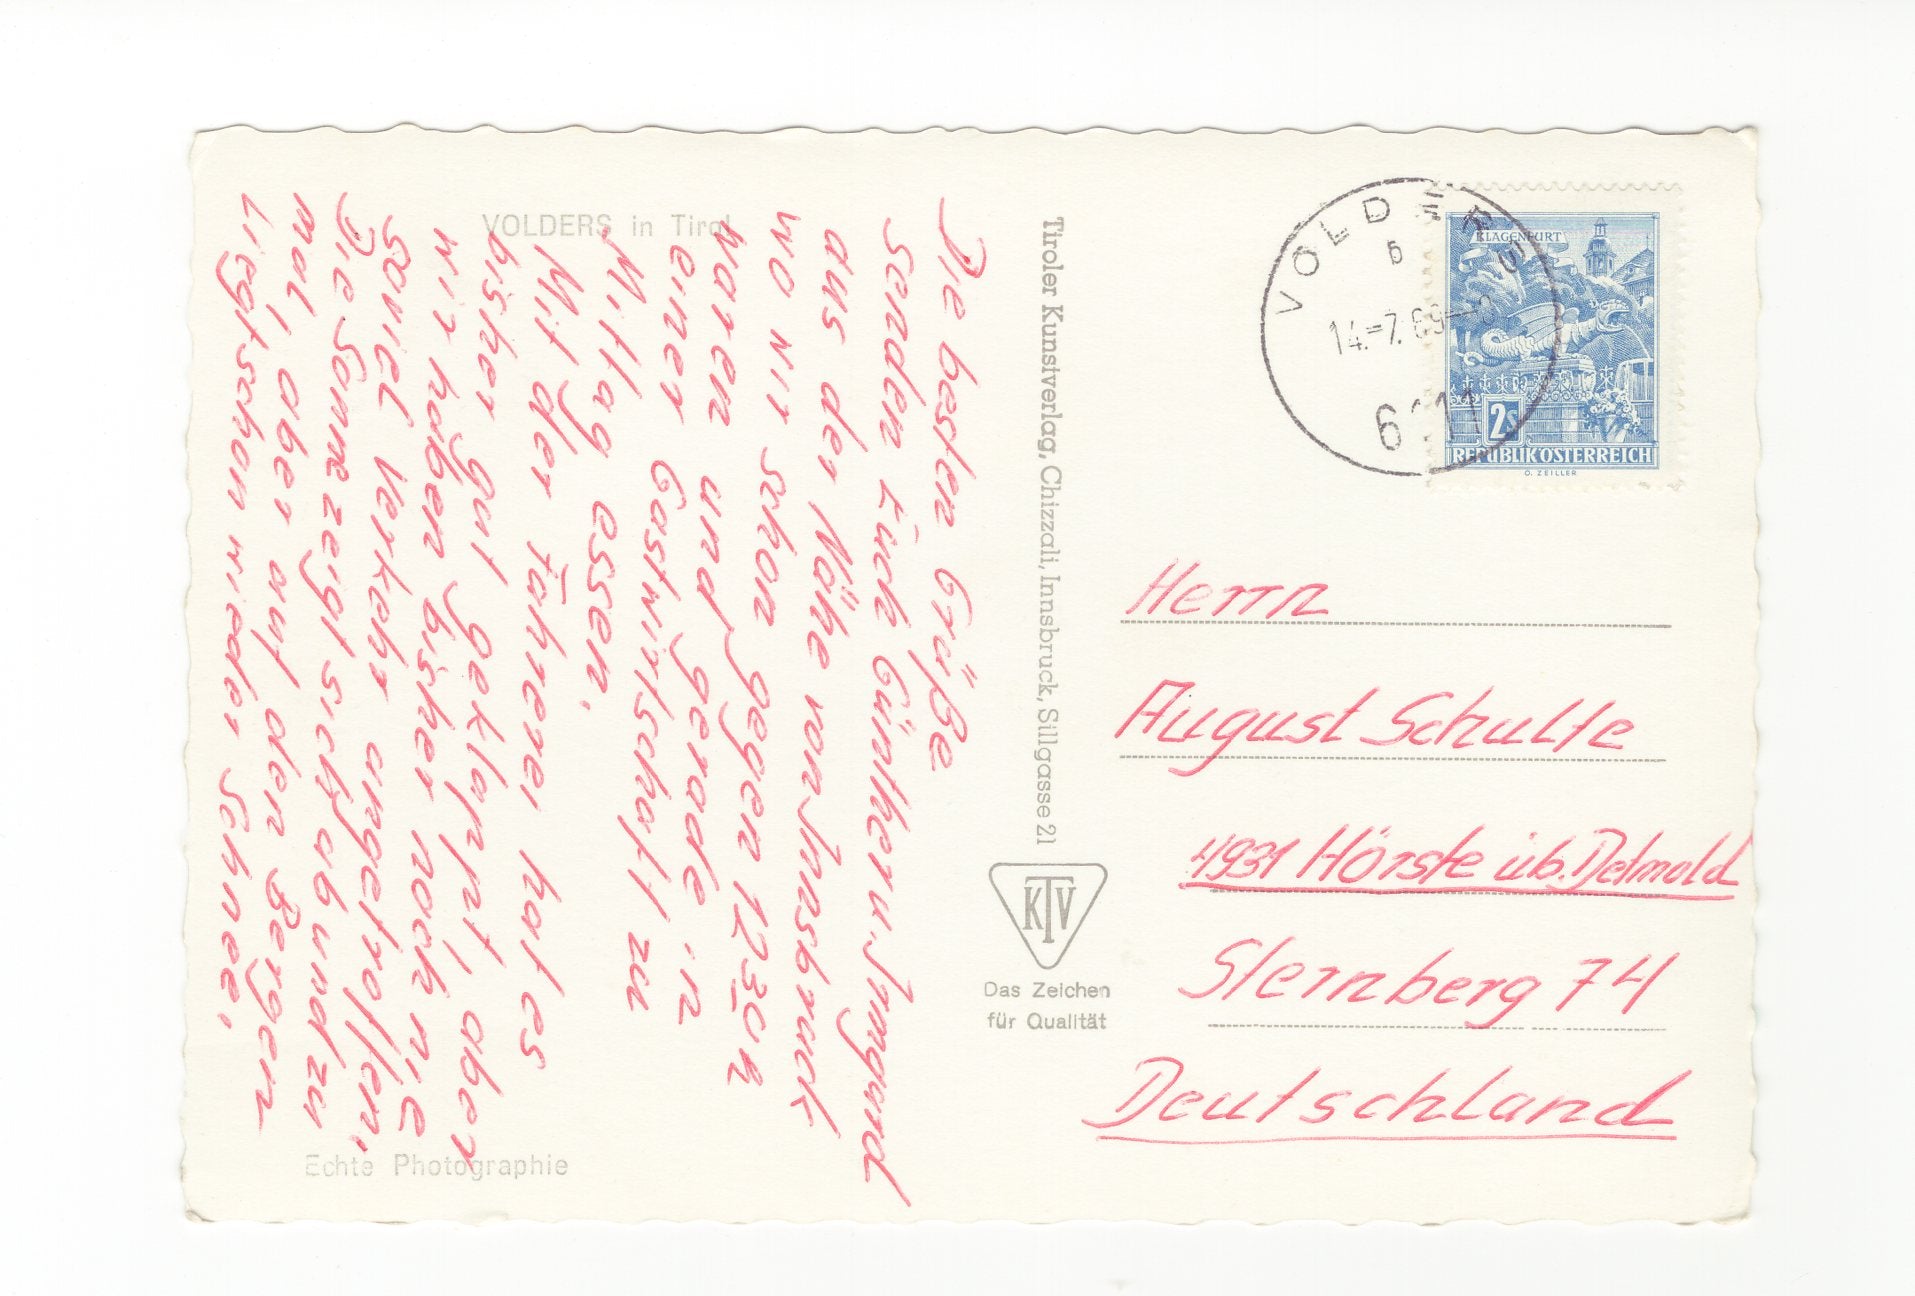 VOLDERS in Tirol
Die besten Grüße
senden Euch Günther u. Irmgard
aus der Nähe von Innsbruck
wo wir schon gegen 1230h
waren und gerade in
einer Gastwirtschaft zu
Mittag essen.
Mit der Fahrerei hat es
bisher gut geklappt, aber
wir haben bisher noch nie
soviel Verkehr angetroffen.
Die Sonne zeigt sich ab und zu
mal, aber auf den Bergen
liegt schon wieder Schnee.
Echte Photographie
Tiroler Kunstverlag, Chizzali, Innsbruck, Sillgasse 21
KTV
Das Zeichen
für Qualität
VOLDERS
14.-7.69-
KLAGENFURT
2S
REPUBLIK ÖSTERREICH
O. ZEILLER
Herrn
August Schulte
4931 Hörste üb. Detmold
Sternberg 74
Deutschland